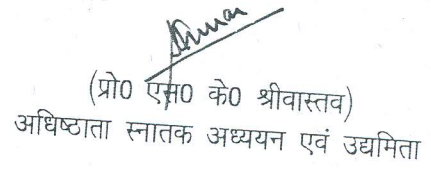 (प्रो0 एस0 के0 श्रीवास्तव)
अधिष्ठाता स्नातक अध्ययन एवं उद्यमिता